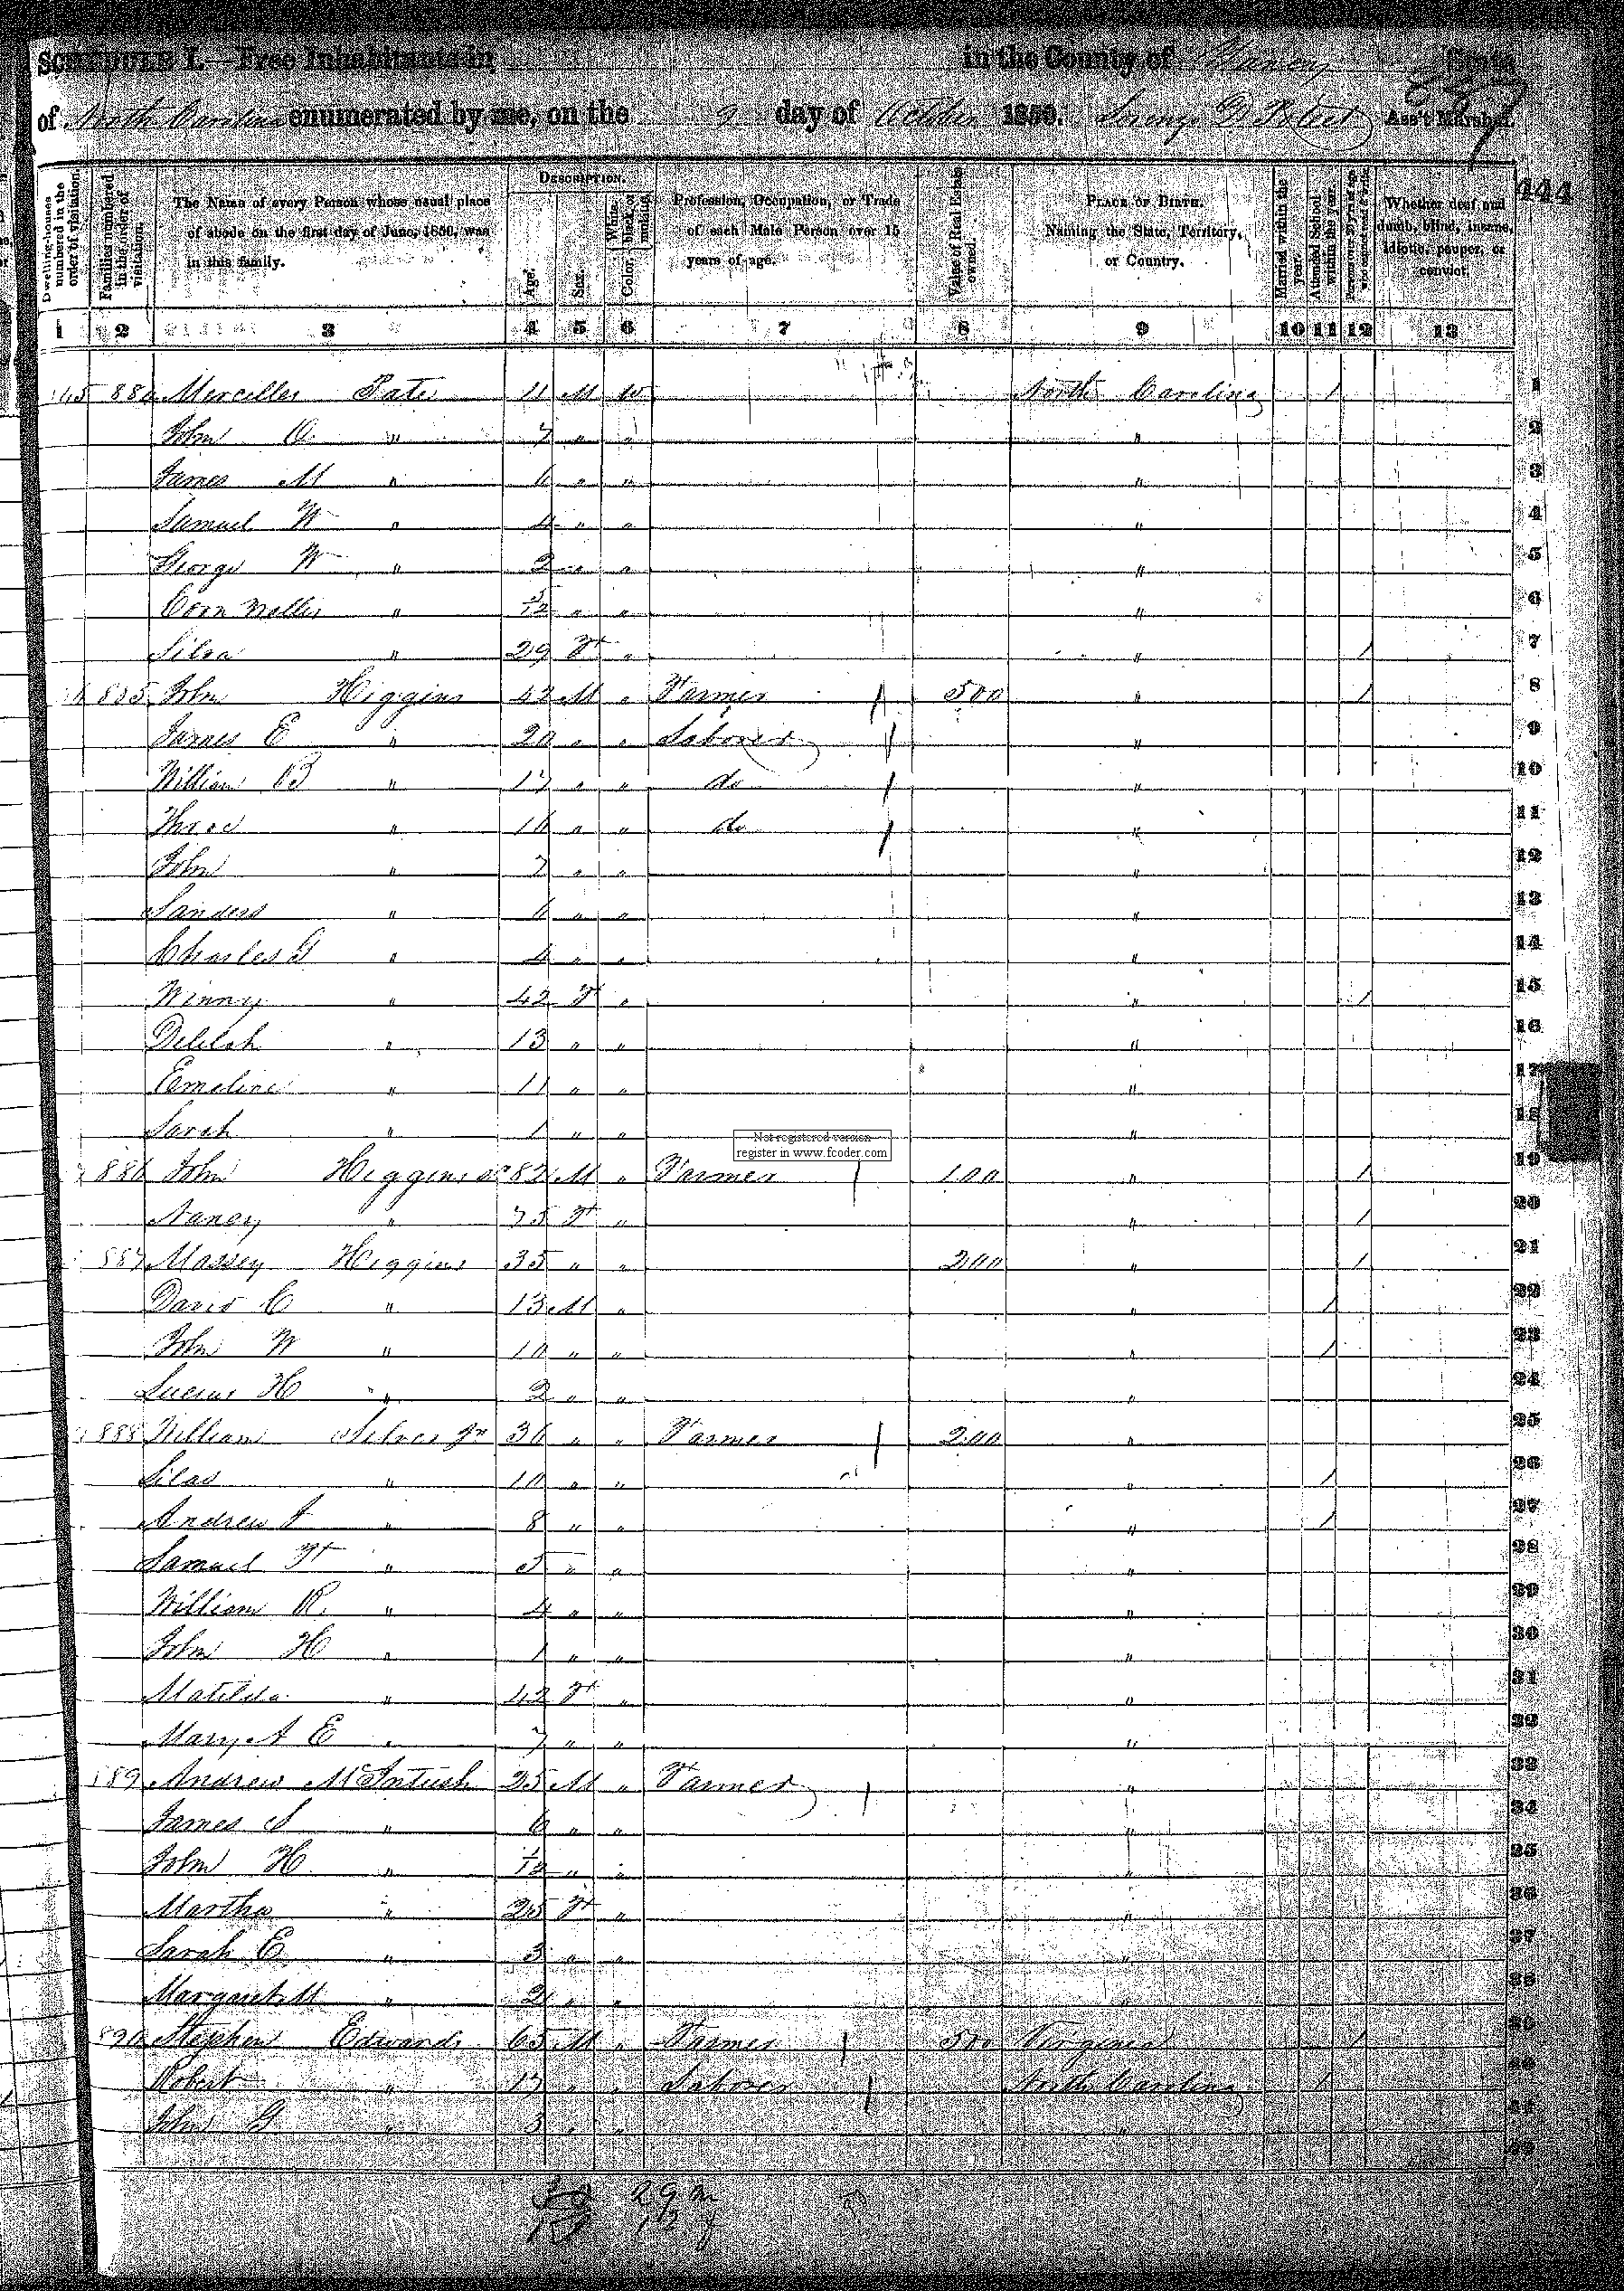 SCHEDULE I.—Free Inhabitants in in the County of Yancey State
of North Carolina enumerated by me, on the 9 day of October 1850. Lorenzo D Ass't Marshal.
444
Dwelling-houses numbered in the order of visitation.
Families numbered in the order of visitation.
The Name of every Person whose usual place of abode on the first day of June, 1850, was in this family.
Description.
Age.
Sex.
Color, White, black, or mulatto.
Profession, Occupation, or Trade of each Male Person over 15 years of age.
Value of Real Estate owned.
Place of Birth. Naming the State, Territory, or Country.
Married within the year.
Attended School within the year.
Persons over 20 y'rs of age who cannot read & write.
Whether deaf and dumb, blind, insane, idiotic, pauper, or convict.
1 2 3 4 5 6 7 8 9 10 11 12 13
884 Merceller Pate 11 M W North Carolina 1 1
John O " 7 " " " 2
James M " 6 " " " 3
Samuel W " 4 " " " 4
George W " 2 " " " 5
" 5/12 " " " 6
Silva " 29 F " " 1 7
885 John Higgins 42 M " Farmer 500 " 1 8
James E " 20 " " Laborer " 9
William B " 17 " " do " 10
" 16 " " do " 11
John " 7 " " " 12
Sanders " 6 " " " 13
Charles G " 4 " " " 14
Winny " 42 F " " 1 15
Delilah " 13 " " " 16
Emeline " 11 " " " 17
Sarah " 1 " " " 18
Not registered version
register in www.fcoder.com
886 John Higgins Sr 82 M " Farmer 100 " 1 19
Nancy " 75 F " " 1 20
887 Massey Higgins 35 " " 200 " 1 21
David C " 13 M " " 1 22
John W " 10 " " " 1 23
Lucius H " 2 " " " 24
888 William Silver Jr 36 " " Farmer 200 " 25
Silas " 10 " " " 1 26
Andrew J " 8 " " " 1 27
Samuel F " 5 " " " 28
William R. " 4 " " " 29
John H " 1 " " " 30
Matilda " 42 F " " 31
Mary A E " 7 " " " 32
889 Andrew McIntush 25 M " Farmer " 33
James S " 6 " " " 34
John H " 1/12 " " " 35
Martha " 25 F " " 36
Sarah E " 3 " " " 37
Margaret M " 2 " " " 38
890 Stephen Edwards 65 M " Farmer 500 Virginia 1 39
Robert " 17 " " Laborer North Carolina 1 40
John G " 3 " " " 41
42
29 m
12 f